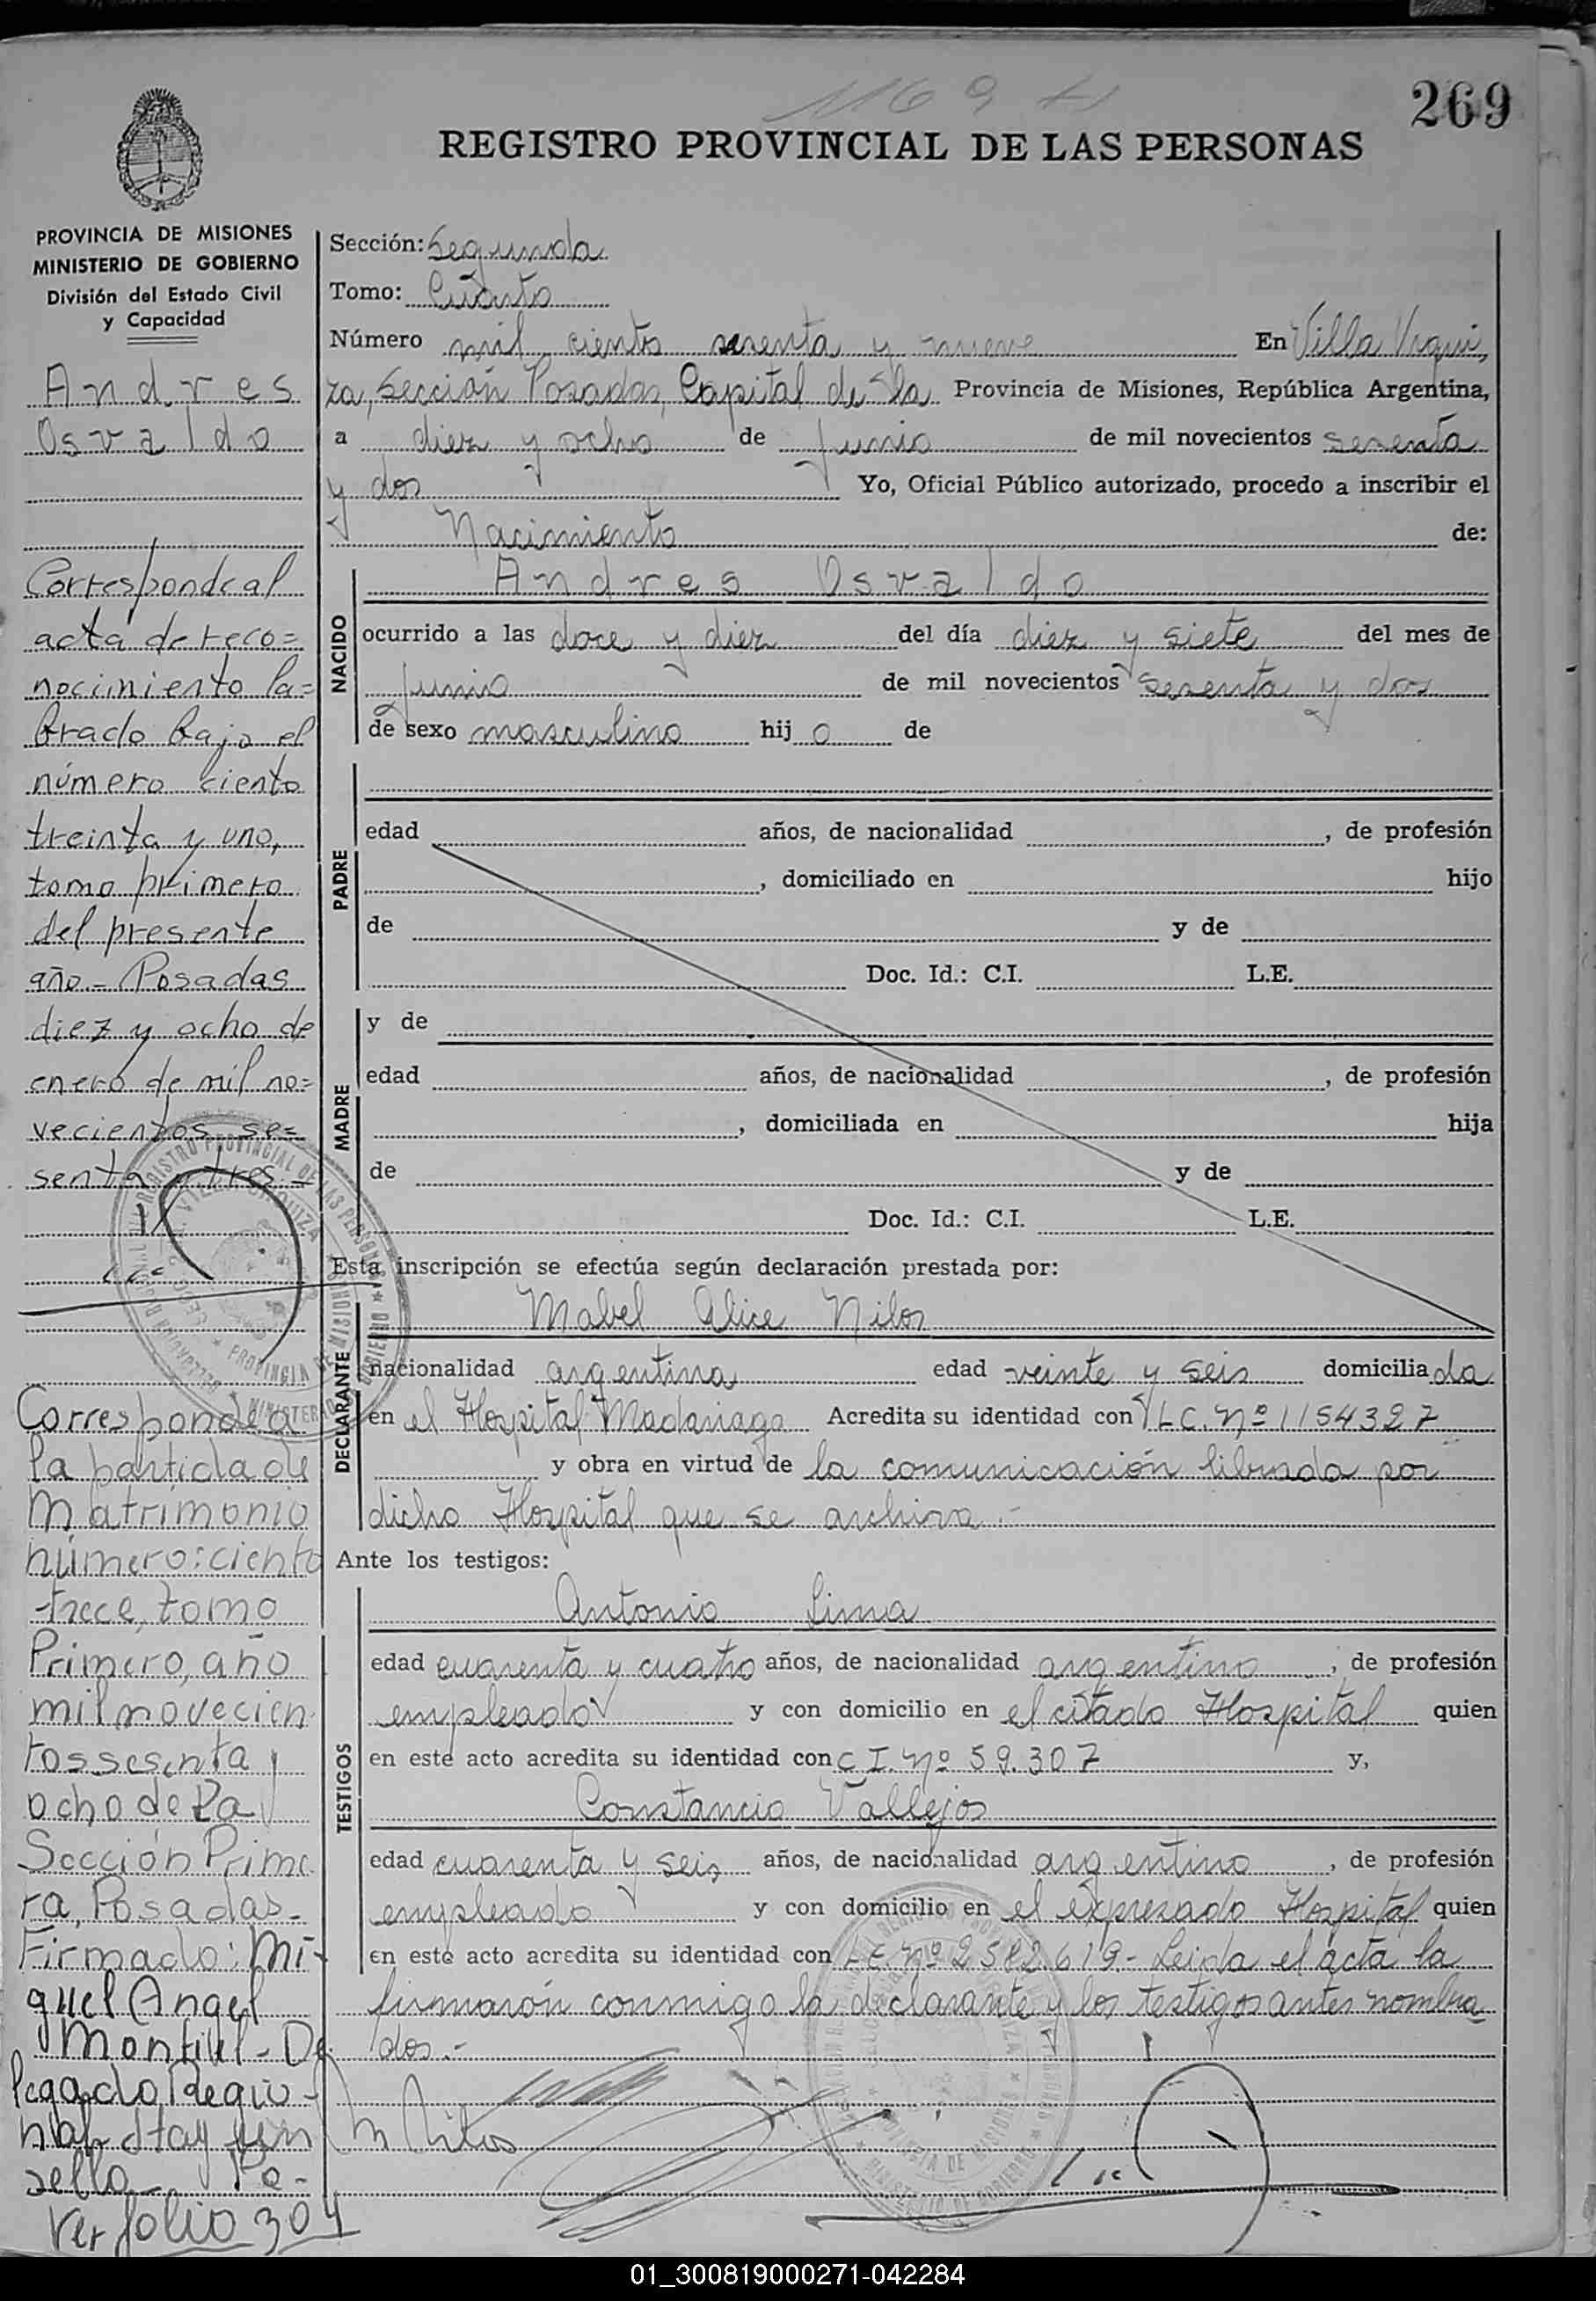 1169
269
REGISTRO PROVINCIAL DE LAS PERSONAS
PROVINCIA DE MISIONES
MINISTERIO DE GOBIERNO
División del Estado Civil
y Capacidad
Andres
Osvaldo
Corresponde al
acta de reco=
nocimiento la=
brado bajo el
número ciento
treinta y uno,
tomo primero
del presente
año.- Posadas
diez y ocho de
enero de mil no=
vecientos se=
senta y tres.-
Corresponde a
la partida de
Matrimonio
número: ciento
trece, tomo
Primero, año
mil novecien
tos sesenta y
ocho de la
Sección Prime
ra, Posadas.
Firmado: Mi-
guel Angel
Montiel - De
legado Regio-
nal- Hay un
sello
Ver folio 304
Sección: Segunda
Tomo: Cuarto
Número mil ciento sesenta y nueve En Villa Urqui,
za, Sección Posadas, Capital de la Provincia de Misiones, República Argentina,
a diez y ocho de Junio de mil novecientos sesenta
y dos Yo, Oficial Público autorizado, procedo a inscribir el
Nacimiento de:
NACIDO
Andres Osvaldo
ocurrido a las doce y diez del día diez y siete del mes de
Junio de mil novecientos sesenta y dos
de sexo masculino hij o de
PADRE
edad años, de nacionalidad , de profesión
, domiciliado en hijo
de y de
Doc. Id.: C.I. L.E.
MADRE
y de
edad años, de nacionalidad , de profesión
, domiciliada en hija
de y de
Doc. Id.: C.I. L.E.
Esta inscripción se efectúa según declaración prestada por:
DECLARANTE
Mabel Alice Nilos
nacionalidad argentina edad veinte y seis domicilia da
en el Hospital Madariaga Acredita su identidad con L.C. Nº 1154327
y obra en virtud de la comunicación librada por
dicho Hospital que se archiva.-
Ante los testigos:
TESTIGOS
Antonio Lima
edad cuarenta y cuatro años, de nacionalidad argentino , de profesión
empleado y con domicilio en el citado Hospital quien
en este acto acredita su identidad con C I. Nº 59.307 y,
Constancio Vallejos
edad cuarenta y seis años, de nacionalidad argentino , de profesión
empleado y con domicilio en el expresado Hospital quien
en este acto acredita su identidad con L.E. Nº 2582.619.- Leida el acta la
firmarón conmigo la declarante y los testigos antes nombra
dos.-
01_300819000271-042284